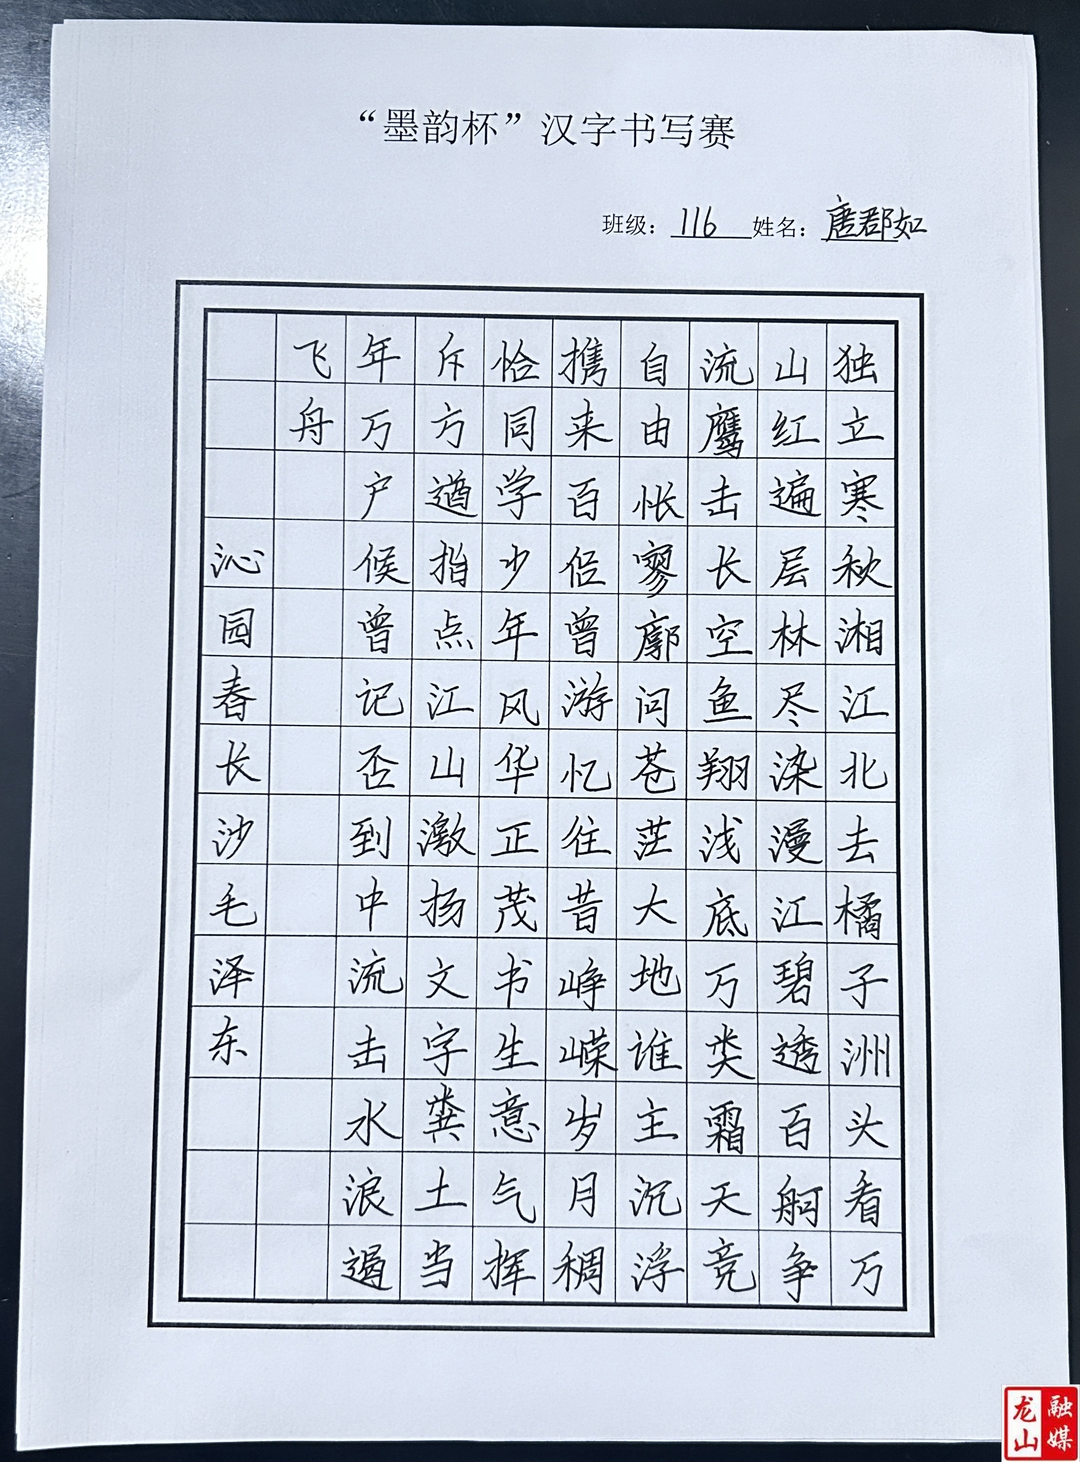 “墨韵杯”汉字书写赛
班级：116 姓名：唐郡如
独立寒秋湘江北去橘子洲头看万
山红遍层林尽染漫江碧透百舸争
流鹰击长空鱼翔浅底万类霜天竞
自由怅寥廓问苍茫大地谁主沉浮
携来百侣曾游忆往昔峥嵘岁月稠
恰同学少年风华正茂书生意气挥
斥方遒指点江山激扬文字粪土当
年万户候曾记否到中流击水浪遏
飞舟
沁园春长沙毛泽东
龙山融媒